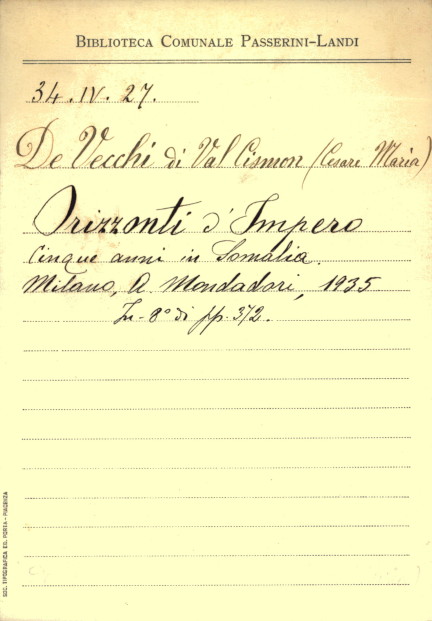 BIBLIOTECA COMUNALE PASSERINI-LANDI
34.IV.27.
De Vecchi di Val Cismon (Cesare Maria)
Orizzonti d'Impero
Cinque anni in Somalia.
Milano, A. Mondadori, 1935
In-8° di pp. 372.
SOC. TIPOGRAFICA ED. PORTA - PIACENZA